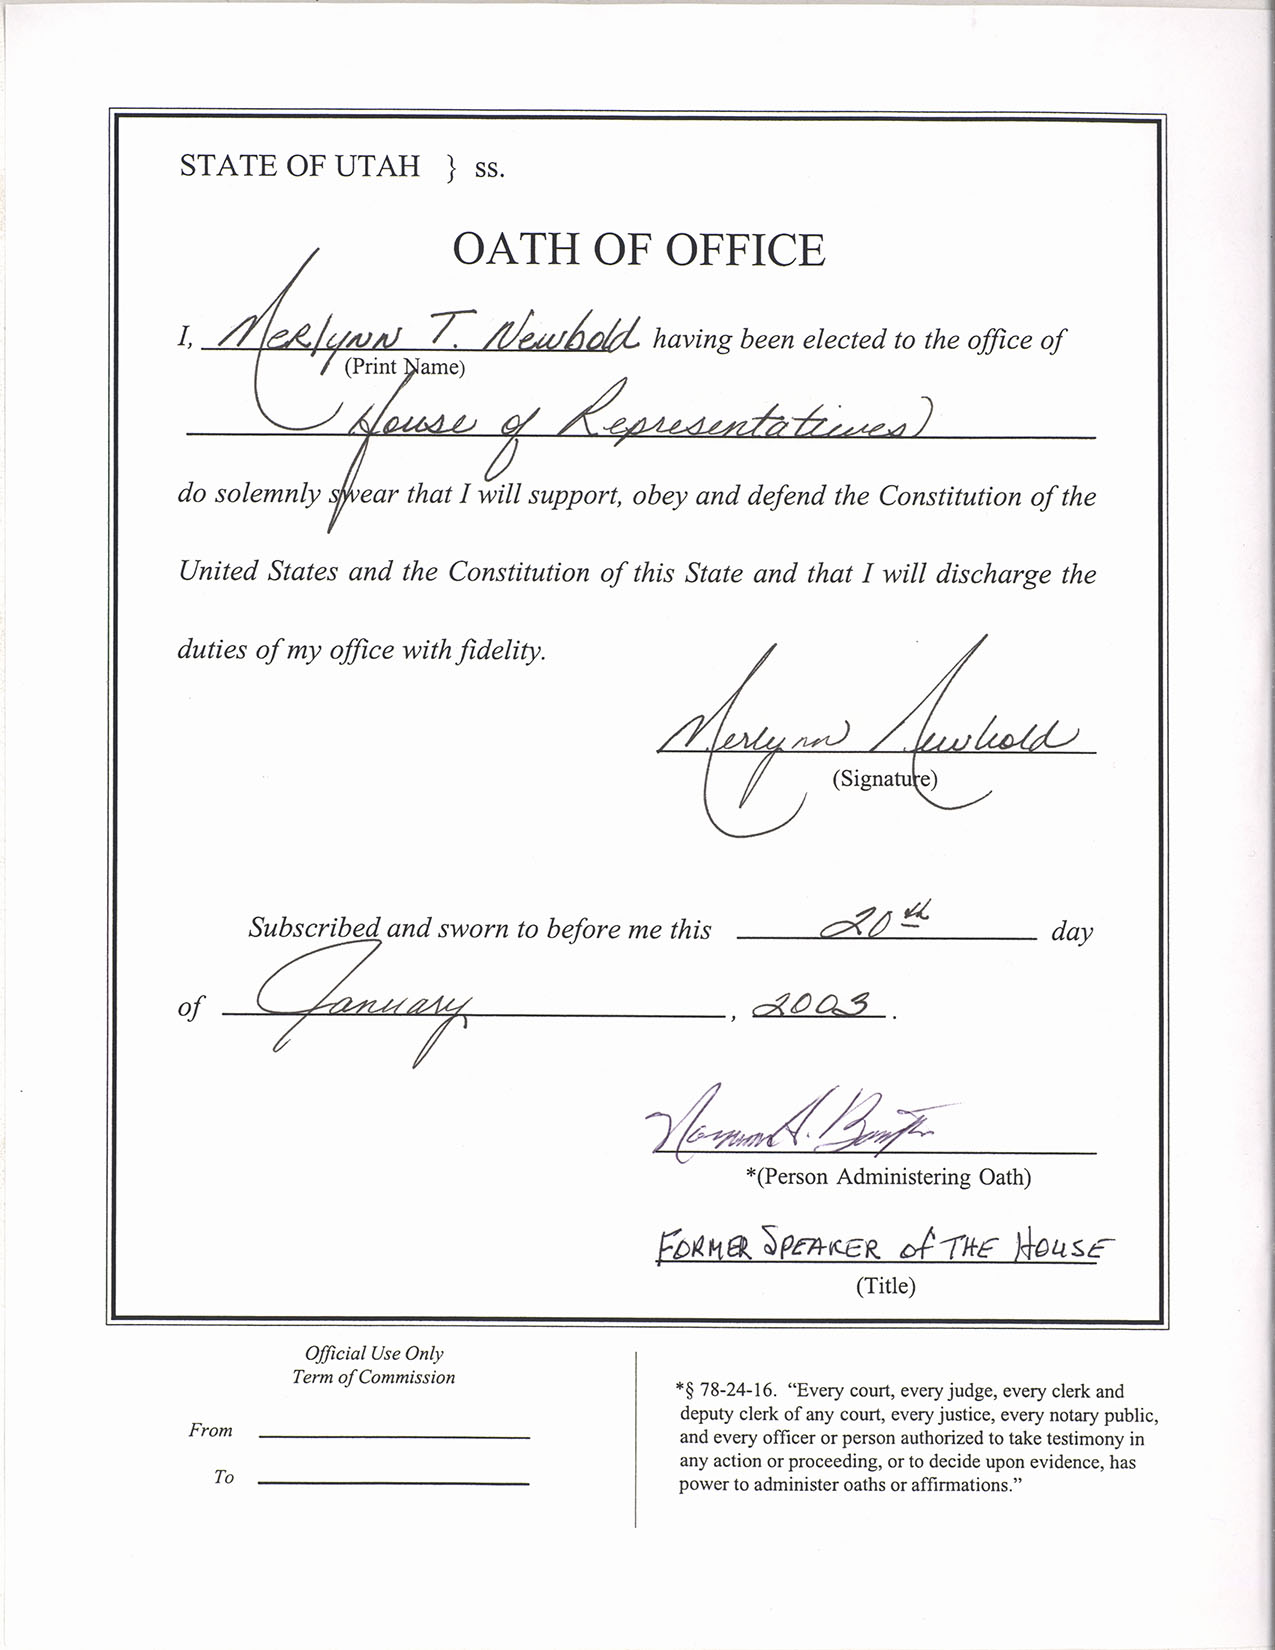 STATE OF UTAH } ss.
OATH OF OFFICE
I, Merlynn T. Newbold having been elected to the office of
(Print Name)
House of Representatives
do solemnly swear that I will support, obey and defend the Constitution of the
United States and the Constitution of this State and that I will discharge the
duties of my office with fidelity.
Merlynn Newbold
(Signature)
Subscribed and sworn to before me this 20th day
of January, 2003.
*(Person Administering Oath)
FORMER SPEAKER of THE HOUSE
(Title)
Official Use Only
Term of Commission
From
To
*§ 78-24-16. “Every court, every judge, every clerk and
deputy clerk of any court, every justice, every notary public,
and every officer or person authorized to take testimony in
any action or proceeding, or to decide upon evidence, has
power to administer oaths or affirmations.”